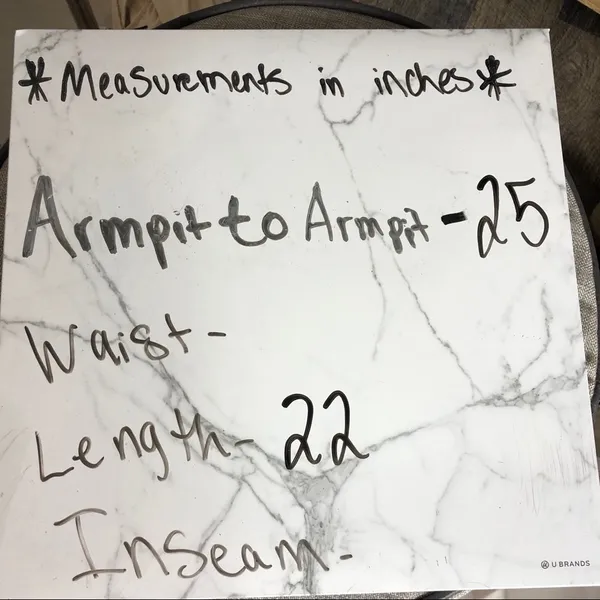 *Measurements in inches*
Armpit to Armpit - 25
Waist -
Length - 22
Inseam -
U BRANDS